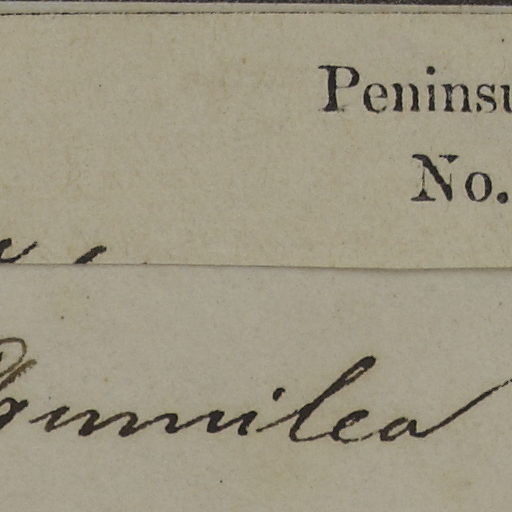 Peninsu
No.
humilea